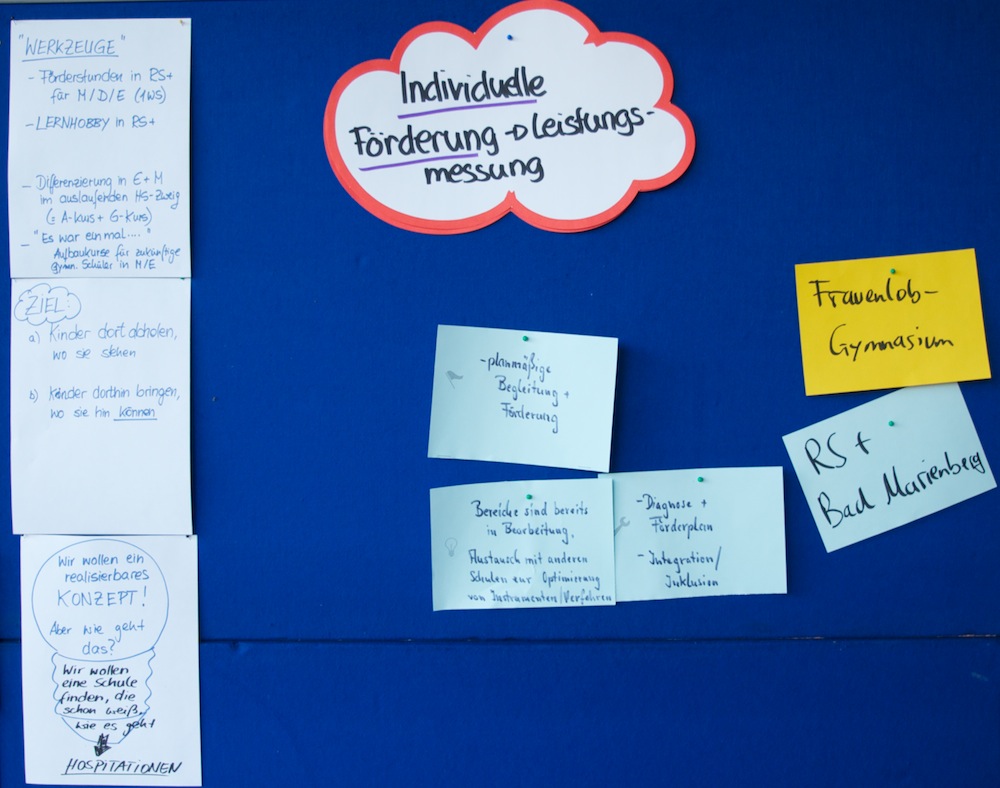 Individuelle
Förderung → Leistungs-
messung
"WERKZEUGE"
- Förderstunden in RS+
für M/D/E (1WS)
- LERNHOBBY in RS+
- Differenzierung in E+M
im auslaufenden HS-Zweig
(= A-Kurs + G-Kurs)
- "Es war einmal...."
Aufbaukurse für zukünftige
Gymn. Schüler in M/E
ZIEL:
a) Kinder dort abholen,
wo sie stehen
b) Kinder dorthin bringen,
wo sie hin können
Wir wollen ein
realisierbares
KONZEPT!
Aber wie geht
das?
Wir wollen
eine Schule
finden, die
schon weiß,
wie es geht
HOSPITATIONEN
- planmäßige
Begleitung +
Förderung
Bereiche sind bereits
in Bearbeitung,
Austausch mit anderen
Schulen zur Optimierung
von Instrumenten/Verfahren
- Diagnose +
Förderplan
- Integration/
Inklusion
Frauenlob-
Gymnasium
RS+
Bad Marienberg